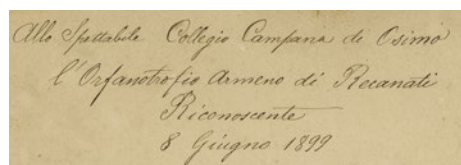 Allo Spettabile Collegio Campana di Osimo
l'Orfanotrofio Armeno di Recanati
Riconoscente
8 Giugno 1899